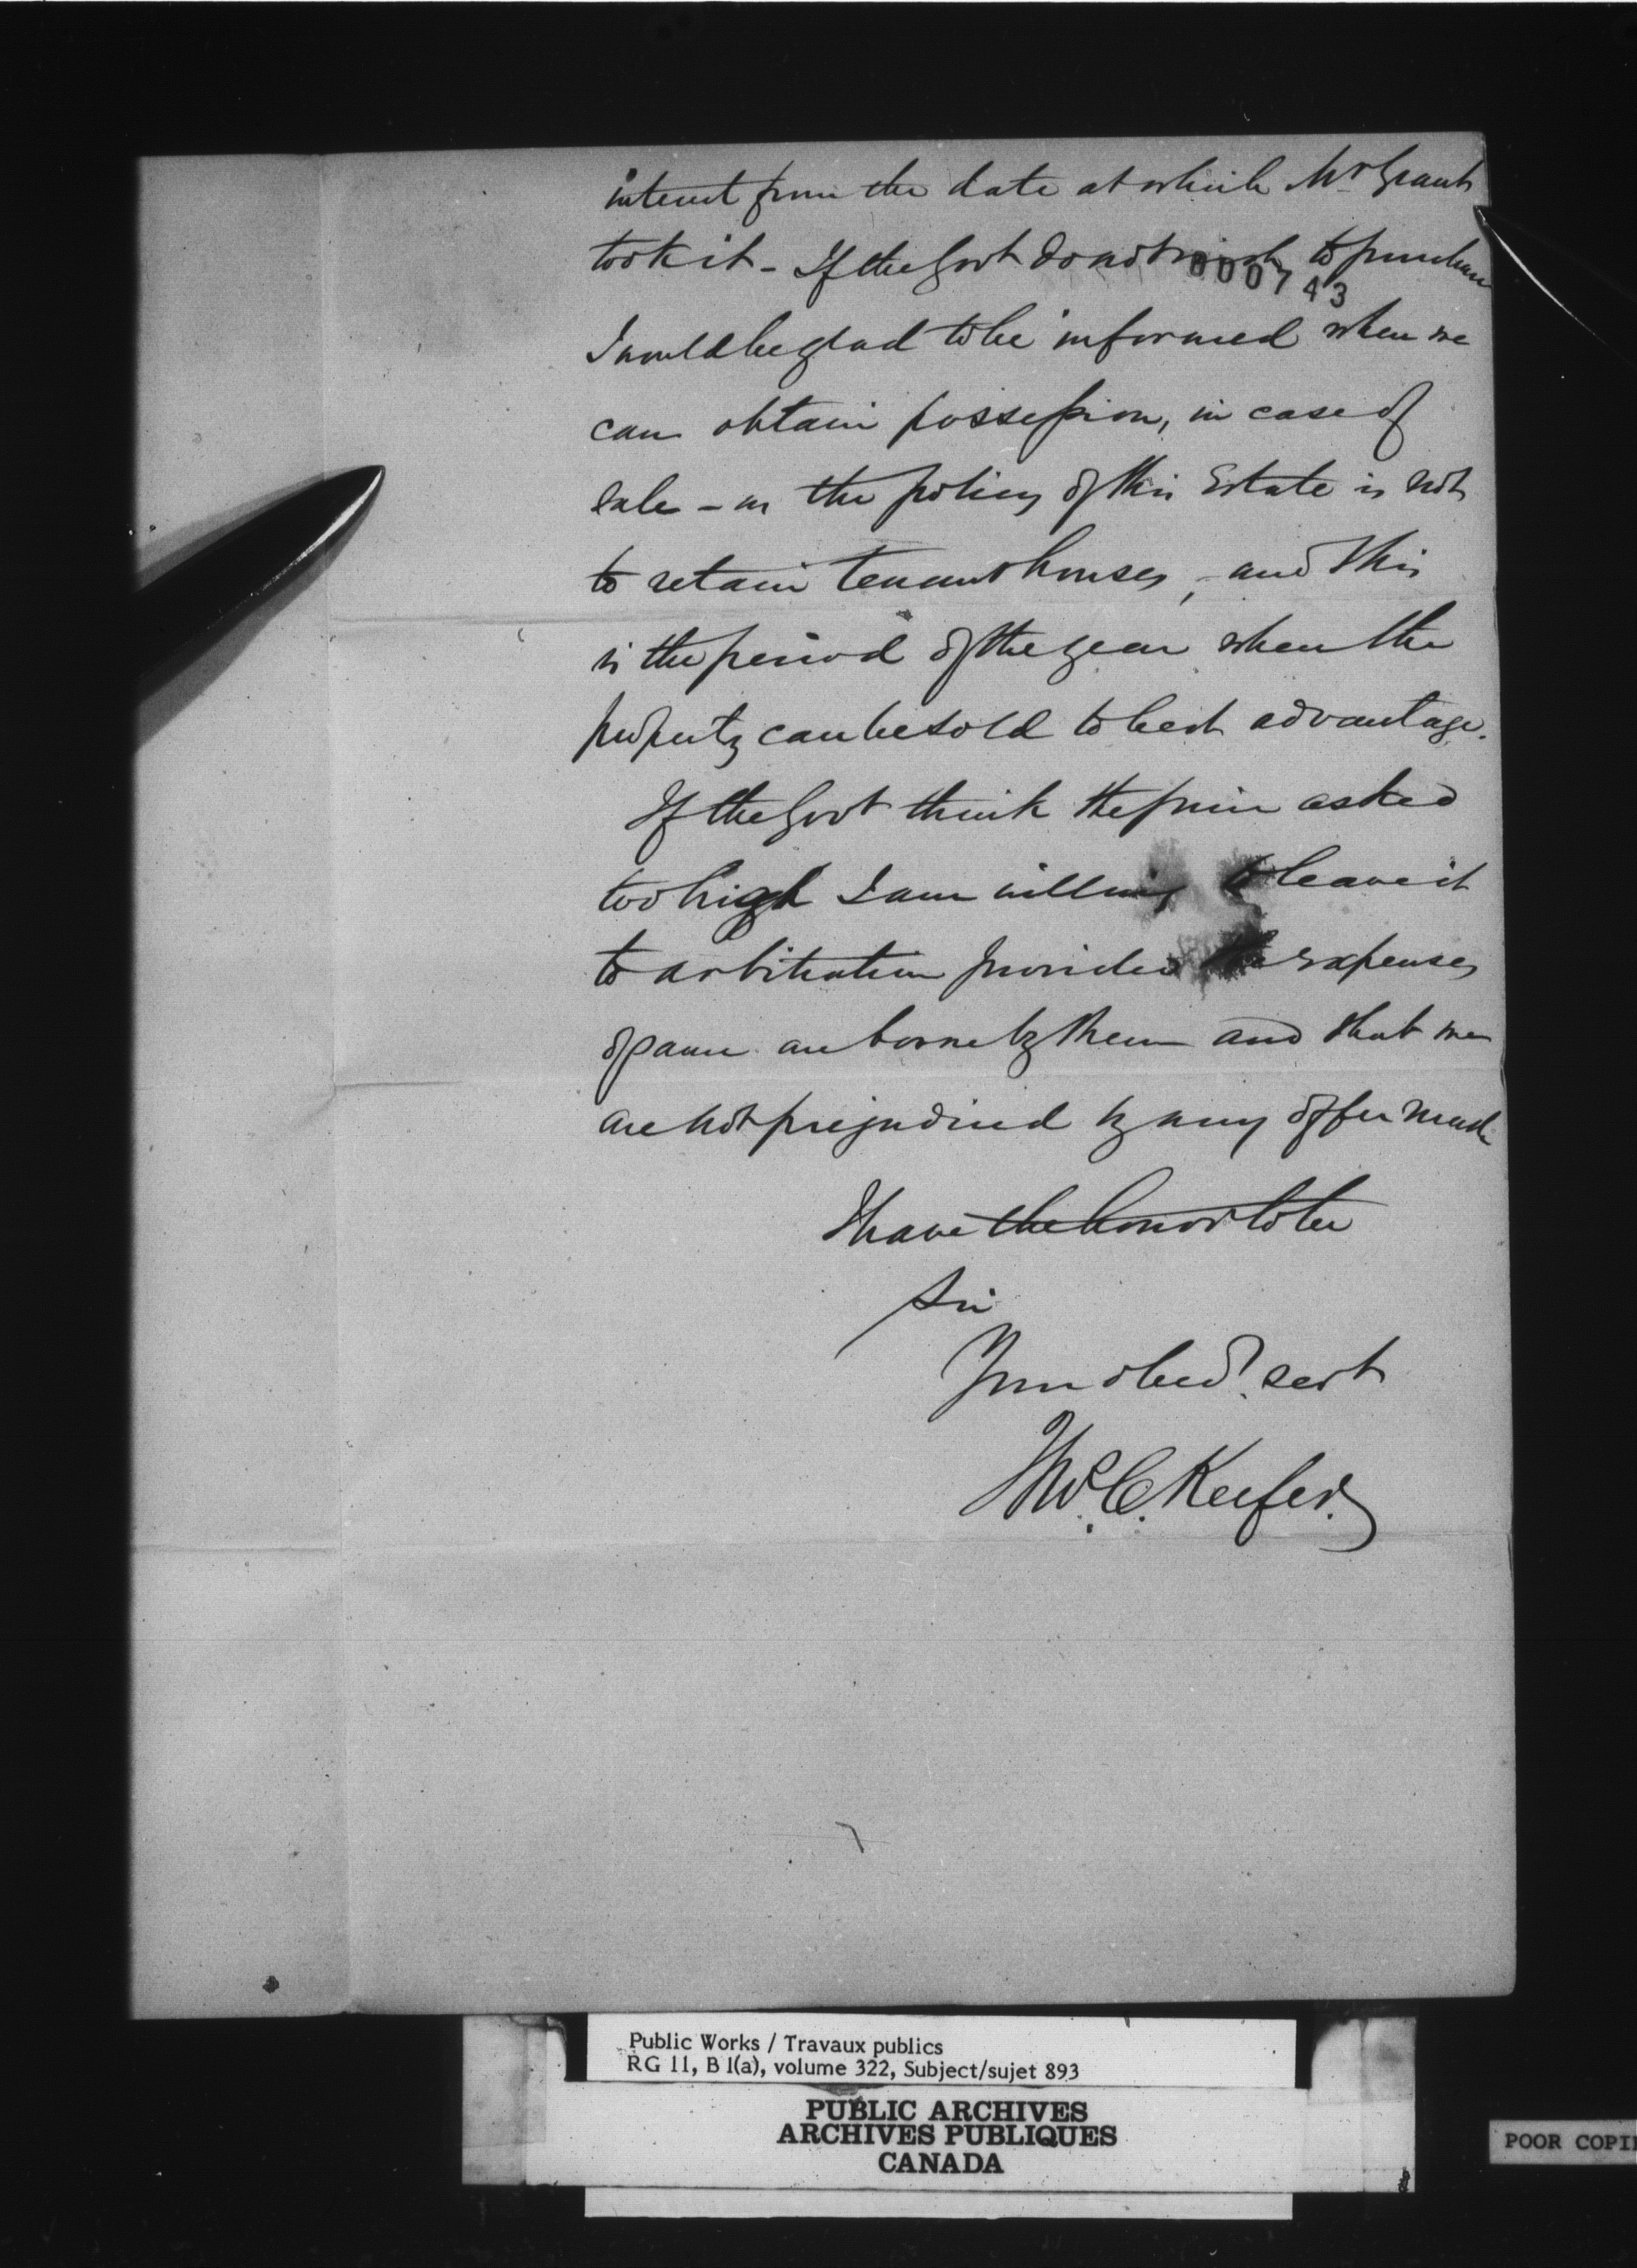 interest from the date at which Mr Grant
took it - If the Govt do not wish to purchase
000743
I would be glad to be informed when we
can obtain possession, in case of
sale - as the policy of this Estate is not
to retain tenant houses, - and this
is the period of the year when the
property can be sold to best advantage.
If the Govt think the price asked
too high I am willing to leave it
to arbitration provided the expenses
of same are borne by them and that we
are not prejudiced by any offer made
I have the honor to be
Sir
Your obedt. servt
Thos. C. Keefer.
Public Works / Travaux publics
RG 11, B 1(a), volume 322, Subject/sujet 893
PUBLIC ARCHIVES
ARCHIVES PUBLIQUES
CANADA
POOR COPI